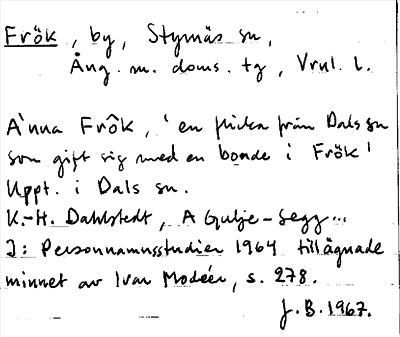 Frök, by, Styrnäs sn,
Ång. m. doms. tg, Vrnl. l.
A`nna Frô`k, 'en flicka från Dals sn
som gift sig med en bonde i Frök'
Uppt. i Dals sn.
K.-H. Dahlstedt, A Gulje-Segg...
I: Personnamnsstudier 1964 tillägnade
minnet av Ivar Modéer, s. 278.
J.B. 1967.